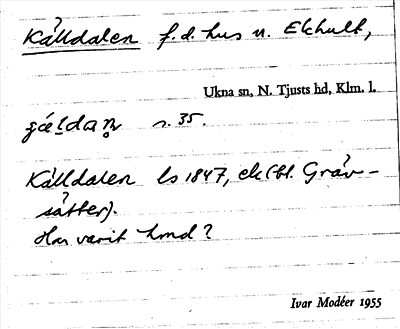 Källdalen f.d. hus u. Ekhult,
Ukna sn, N. Tjusts hd, Klm. l.
s. 35.
Källdalen ls 1847, ek (bl. Gräv-
sätter).
Har varit hmd?
Ivar Modéer 1955